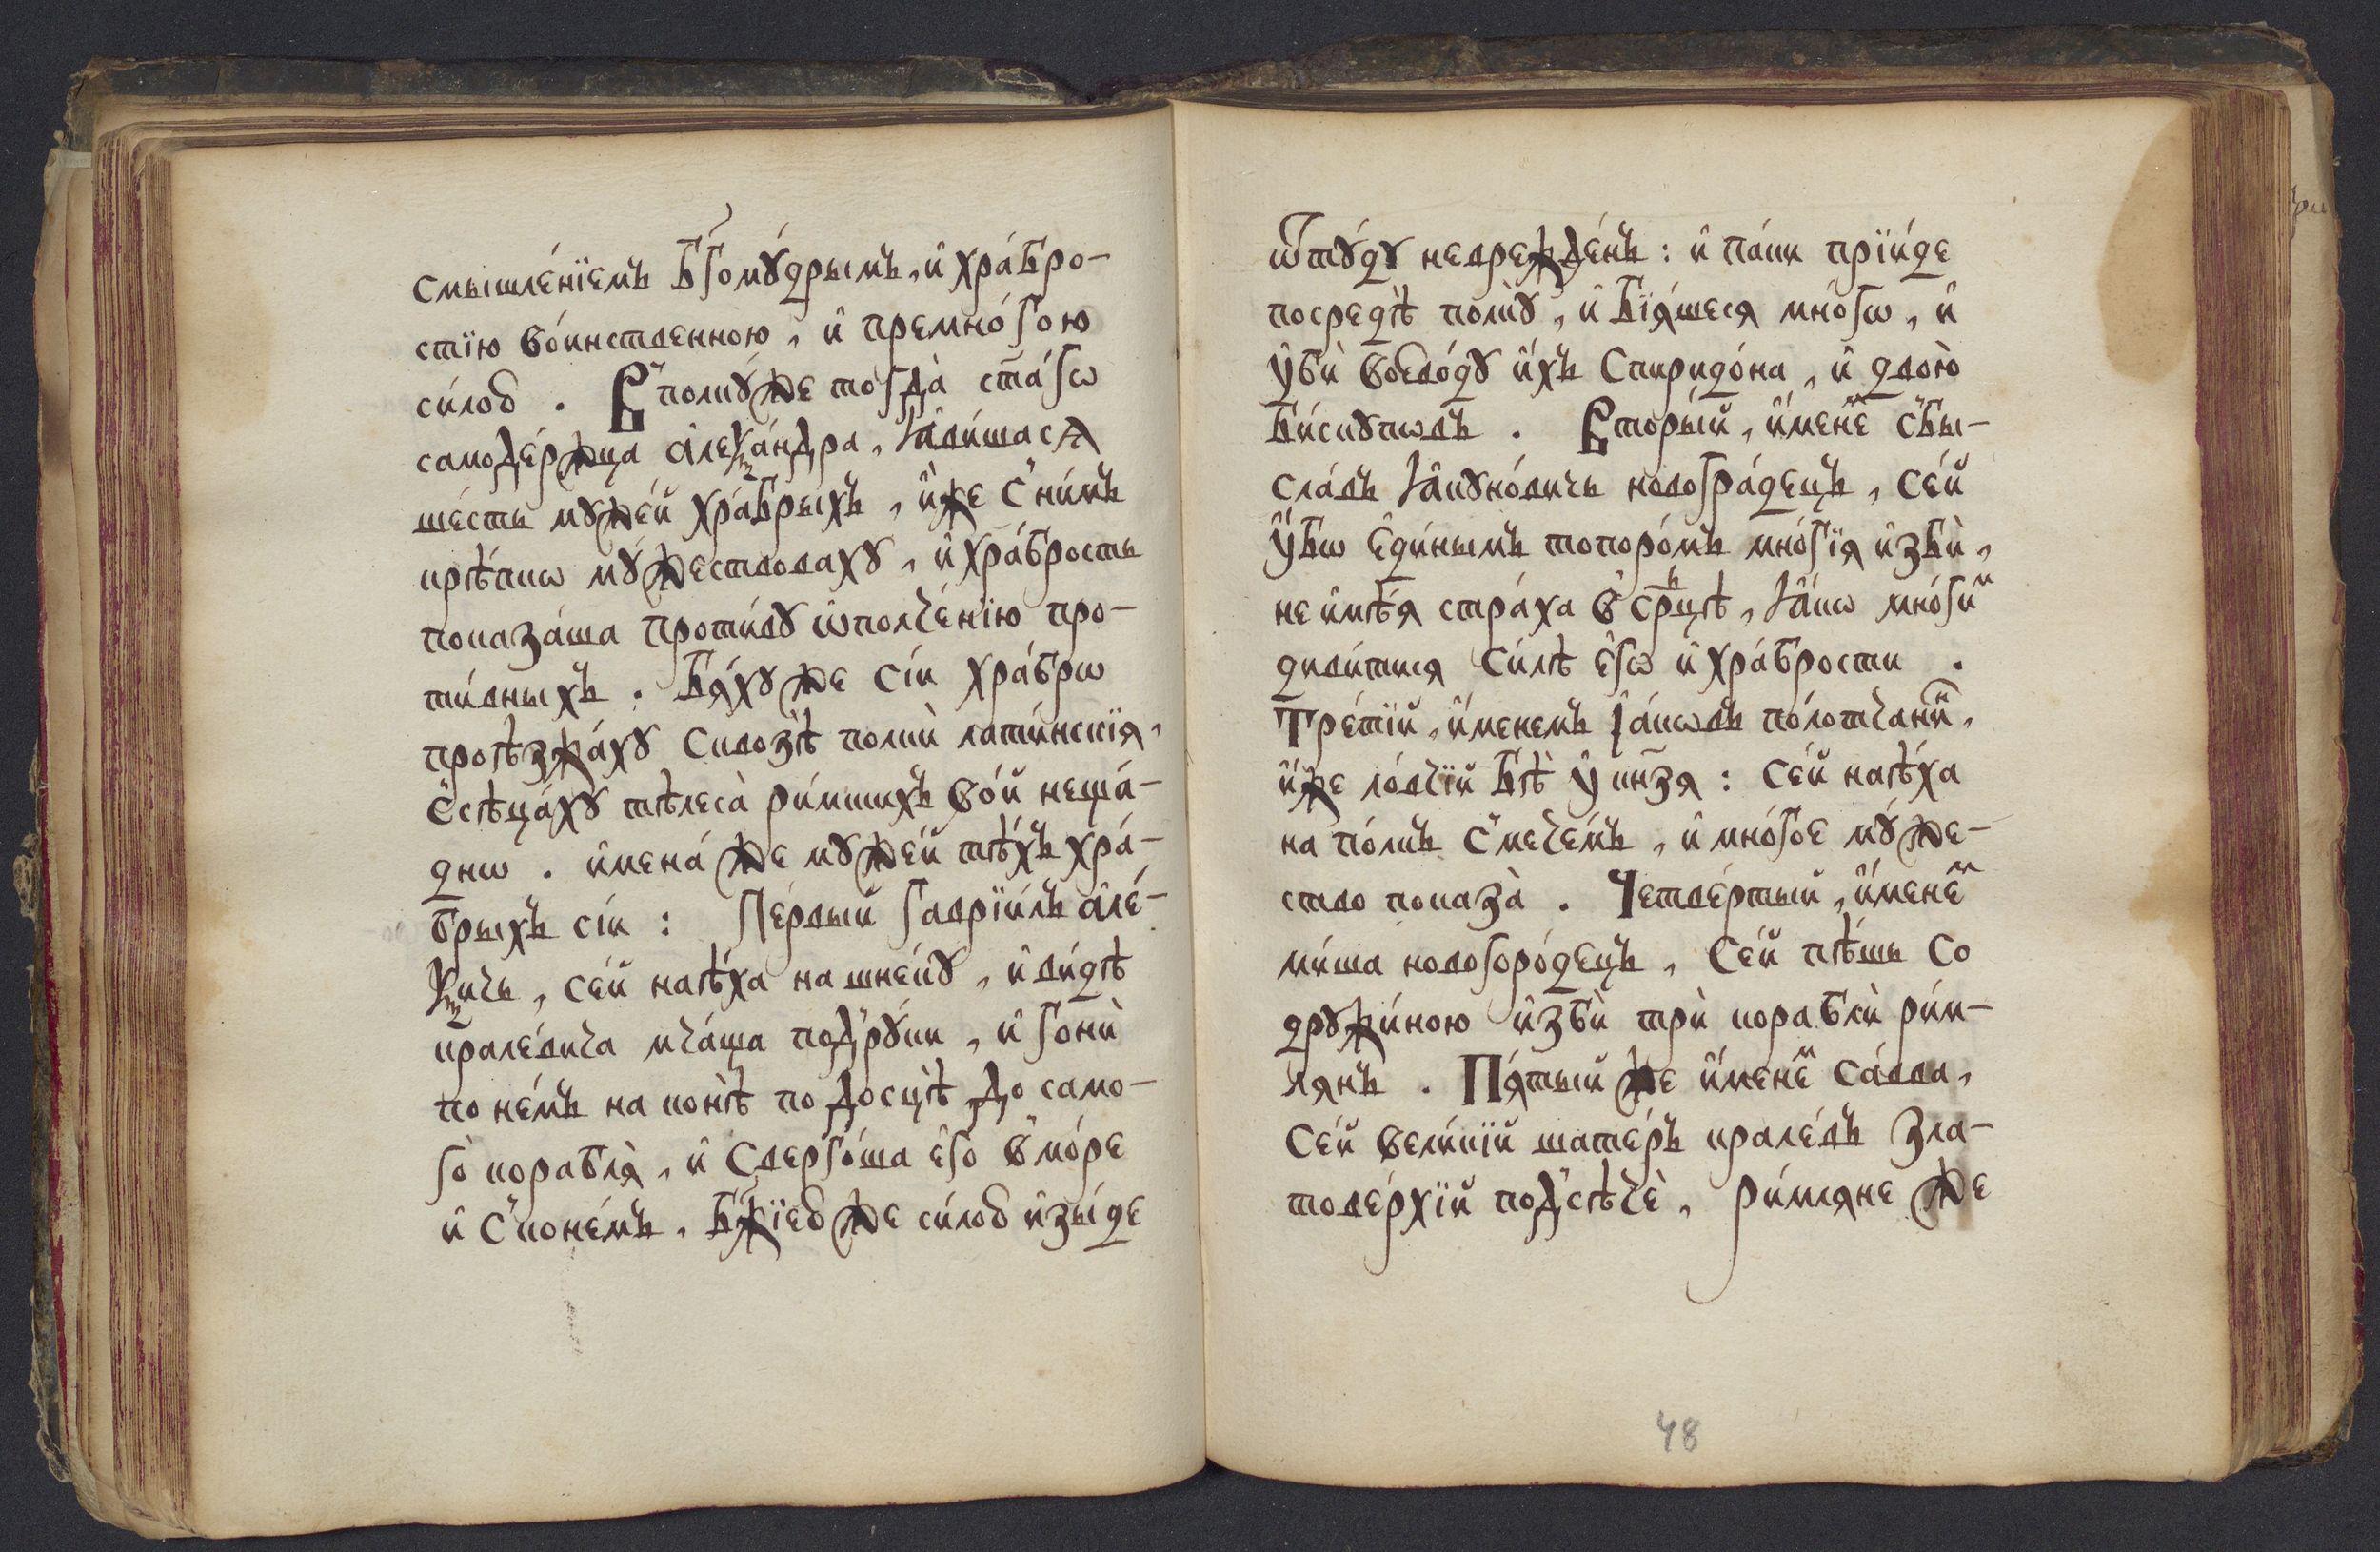 смышле́нїемъ бг҃омꙋ́дрымъ, и҆ хра́бро-
стїю во́инственною, и҆ премно́гою
си́лою . В̾полкꙋ́же тогда̀ ст҃а́гѡ
самоде́ржца а҆леѯа́ндра, ꙗ҆ви́шася
ше́сть мꙋже́й хра́брыхъ, и҆́же с̾ни́мъ
крѣ́пкѡ мꙋ́жествовахꙋ, и҆ хра́брость
показа́ша проти́вꙋ ѡ҆полче́нїю про-
ти́вныхъ . Бѧ́хꙋ же сі́и хра́брѡ
проѣзжа́хꙋ сквозѣ̀ полкѝ лати́нскїя,
є҆сѣца́хꙋ тѣлеса̀ ри́мскихъ во́й неща́-
днѡ . и҆мена́ же мꙋже́й тѣ́хъ хра́-
брыхъ сі́и : Пе́рвый гаврїи́лъ а҆ле́-
ѯичь, се́й наѣ́ха на шне́кꙋ, и҆ ви́дѣ
крале́вича мча́ща под̾рꙋ́ки, и҆ гонѝ
по не́мъ на конѣ̀ по досцѣ̀, до само-
гѡ̀ корабля̀, и҆ сверго́ша є҆го̀ в̾мо́ре
и҆ с̾коне́мъ . Бж҃їею же си́лою и҆зы́де
ѿтꙋ́дꙋ невреждéнъ : и҆ па́ки прїи́де
посредѣ̀ полкꙋ̀, и҆ бїя́шеся мно́гѡ, и҆
ᲂу҆бѝ воево́дꙋ и҆́хъ Спиридо́на, и҆ двою̀
би́скꙋпѡвъ . Вторы́й, и҆́менеⷨ с̾бы-
сла́въ ꙗ҆кꙋно́вичь новогра́децъ, се́й
ᲂу҆́бѡ є҆ди́нымъ топоро́мъ мно́гїя и҆збѝ,
не и҆мѣ́я стра́ха в̾ срⷣцѣ, ꙗ҆́кѡ мно́гиⷨ
диви́тися си́лѣ є҆гѡ̀ и҆ хра́брости .
Тре́тїй, и҆́менемъ і҆а́кѡвъ по́лотчаниⷩ,
и҆́же ло́вчїй бѣ̀ ᲂу҆ кн҃зя : се́й наѣ́ха
на по́лкъ с̾мече́мъ, и҆ мно́гое мꙋ́же-
ство показа̀ . Четве́ртый, и҆́менеⷨ
ми́ша новогоро́децъ, се́й пѣ́шь со
дрꙋжи́ною и҆збѝ трѝ кораблѝ ри́м-
лянъ . Пя́тый же и҆́менеⷨ са́вва,
се́й вели́кїй шате́ръ крале́въ зла-
тове́рхїй под̾сѣчѐ, ри́мляне же
48